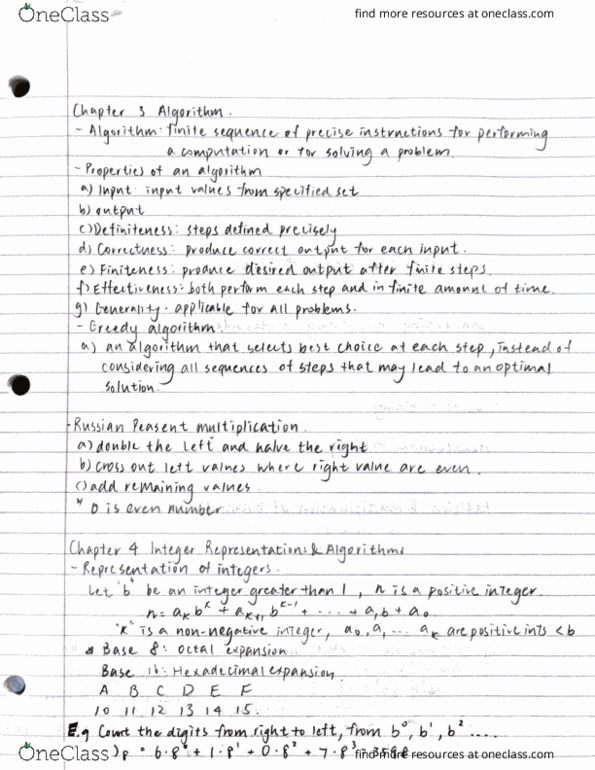 OneClass
find more resources at oneclass.com
Chapter 3 Algorithm.
- Algorithm: finite sequence of precise instructions for performing
a computation or for solving a problem.
- Properties of an algorithm
a) Input: input values from specified set
b) output
c) Definiteness: steps defined precisely
d) Correctness: produce correct output for each input.
e) Finiteness: produce desired output after finite steps.
f) Effectiveness: both perform each step and in finite amount of time.
g) Generality: applicable for all problems.
- Greedy algorithm
a) an algorithm that selects best choice at each step, instead of
considering all sequences of steps that may lead to an optimal
solution.
- Russian Peasent multiplication.
a) double the left and halve the right
b) cross out left values where right value are even.
c) add remaining values.
* 0 is even number
Chapter 4 Integer Representations & Algorithms
- Representation of integers.
Let "b" be an integer greater than 1, n is a positive integer.
n = aₖbᵏ + aₖ₊₁bᵏ⁻¹ + ... + a₁b + a₀
"k" is a non-negative integer, a₀, a₁ ... aₖ are positive ints < b
Base 8: octal expansion
Base 16: Hexadecimal expansion
A B C D E F
10 11 12 13 14 15.
E.g Count the digits from right to left, from b⁰, b¹, b² .....
6·8⁰ + 1·8¹ + 0·8² + 7·8³
OneClass
find more resources at oneclass.com